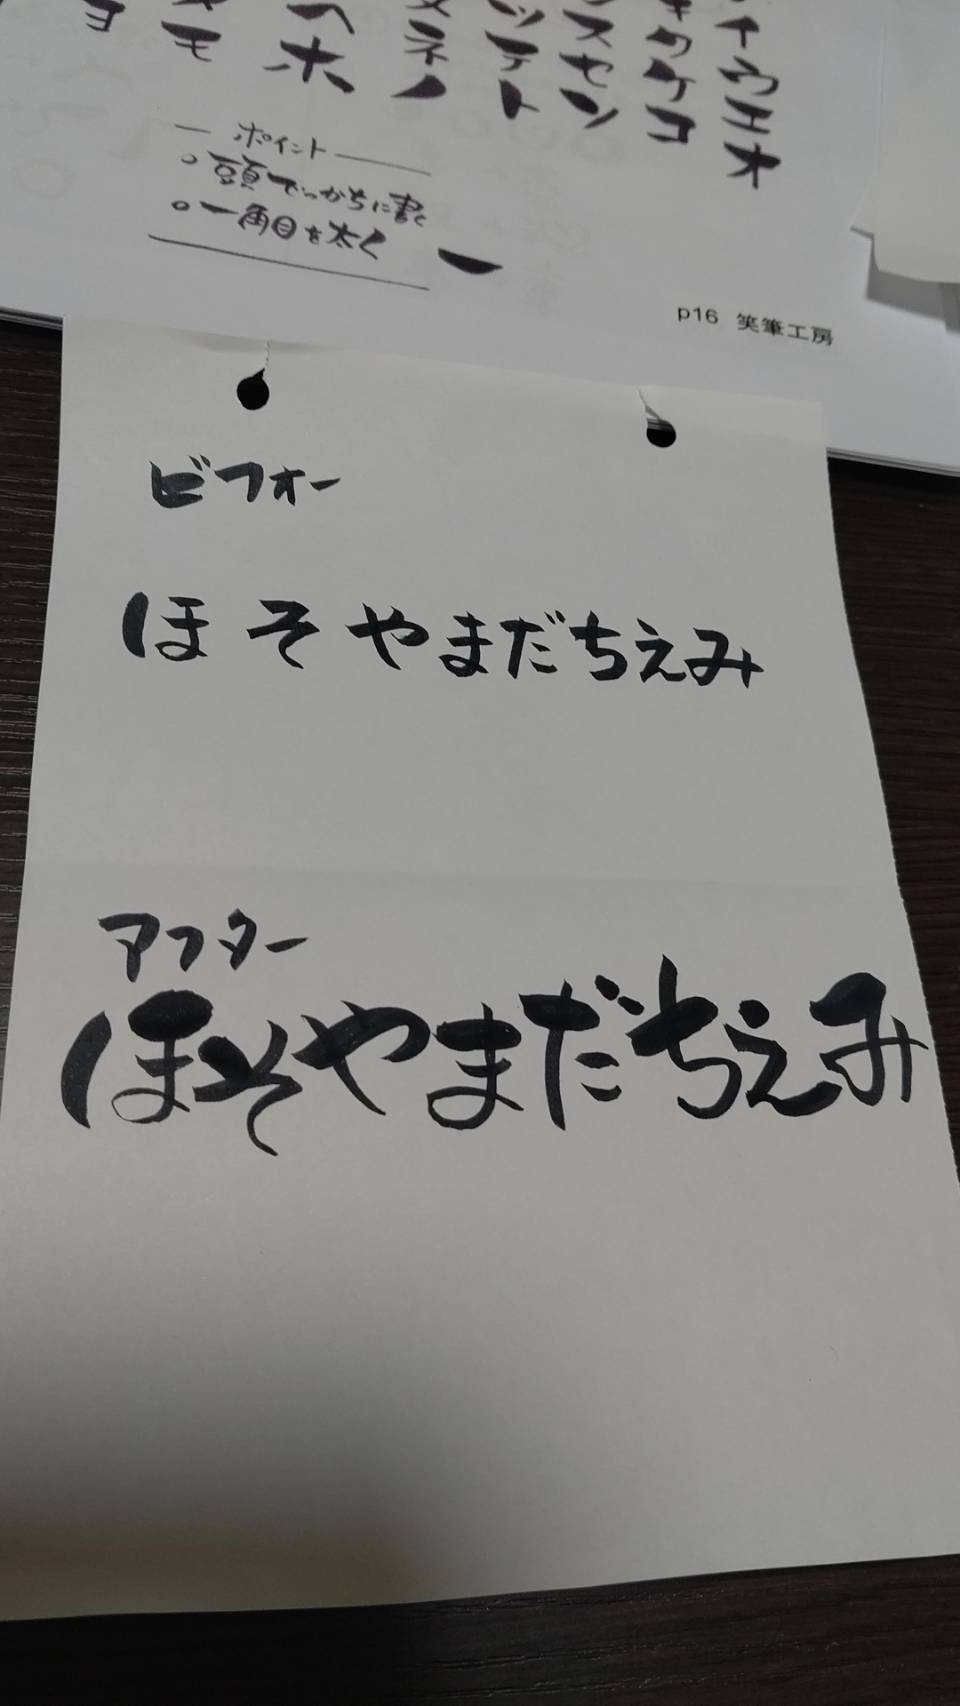 イウエオ
キクケコ
スセソ
ッテト
ネノ
ヘホ
モ
ヨ
ポイント
○頭でっかちに書く
○一角目を太く
p16 笑筆工房
ビフォー
ほそやまだちえみ
アフター
ほそやまだちえみ